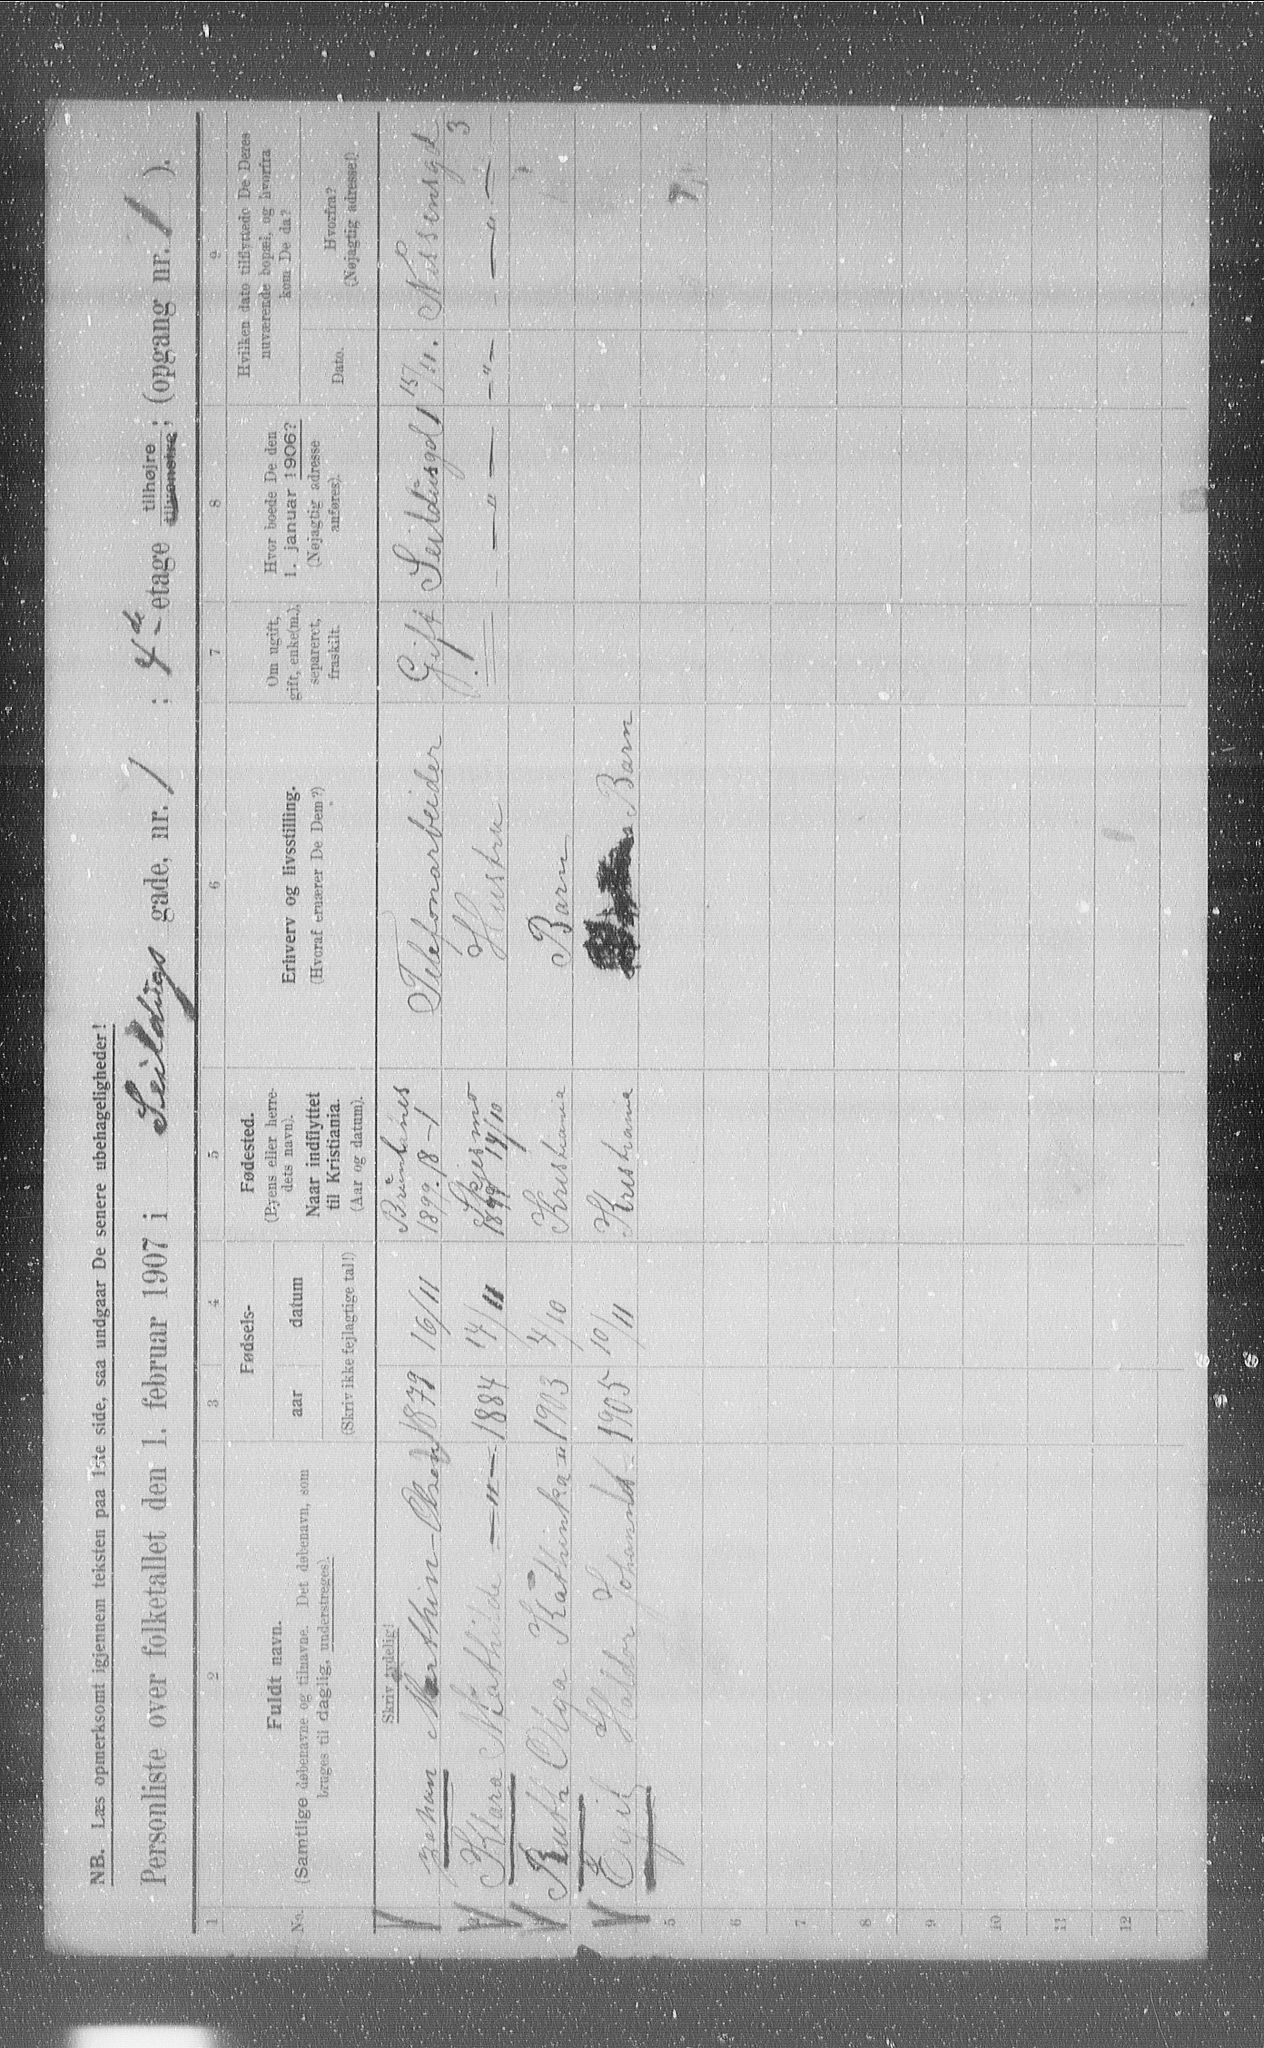 NB. Læs opmerksomt igjennem teksten paa 1ste side, saa undgaar De senere ubehageligheder!
Personliste over folketallet den 1. februar 1907 i Seildugs gade, nr. 1 ; 4de - etage tilhøjre tilvenstre ; (opgang nr. 1 ).
1 2 3 4 5 6 7 8 9
No.
Fuldt navn.
(Samtlige døbenavne og tilnavne. Det døbenavn, som
bruges til daglig, understreges).
Fødsels-
aar datum
(Skriv ikke fejlagtige tal!)
Fødested.
(Byens eller herre-
dets navn).
Naar indflyttet
til Kristiania.
(Aar og datum).
Erhverv og livsstilling.
(Hvoraf ernærer De Dem?)
Om ugift,
gift, enke(m.),
separeret,
fraskilt.
Hvor boede De den
1. januar 1906?
(Nøjagtig adresse
anføres).
Hvilken dato tilflyttede De Deres
nuværende bopæl, og hvorfra
kom De da?
Dato.
Hvorfra?
(Nøjagtig adresse!)
Skriv tydelig!
Johan Marthin - Olsen 1879 16/11 1899. 18-1 Telefonarbeider Gift Seildugsgd 1 15/11. Nissensgd 3
Klara Mathilde —"— 1884 14/11 1899 14/10 Hustru —"— —"— —"—
Ruth Olga Kathinka —"— 1903 4/10 Kristiania Barn
Egil Haldor Johannes - 1905 10/11 Kristiania Barn
5
6
7
8
9
10
11
12